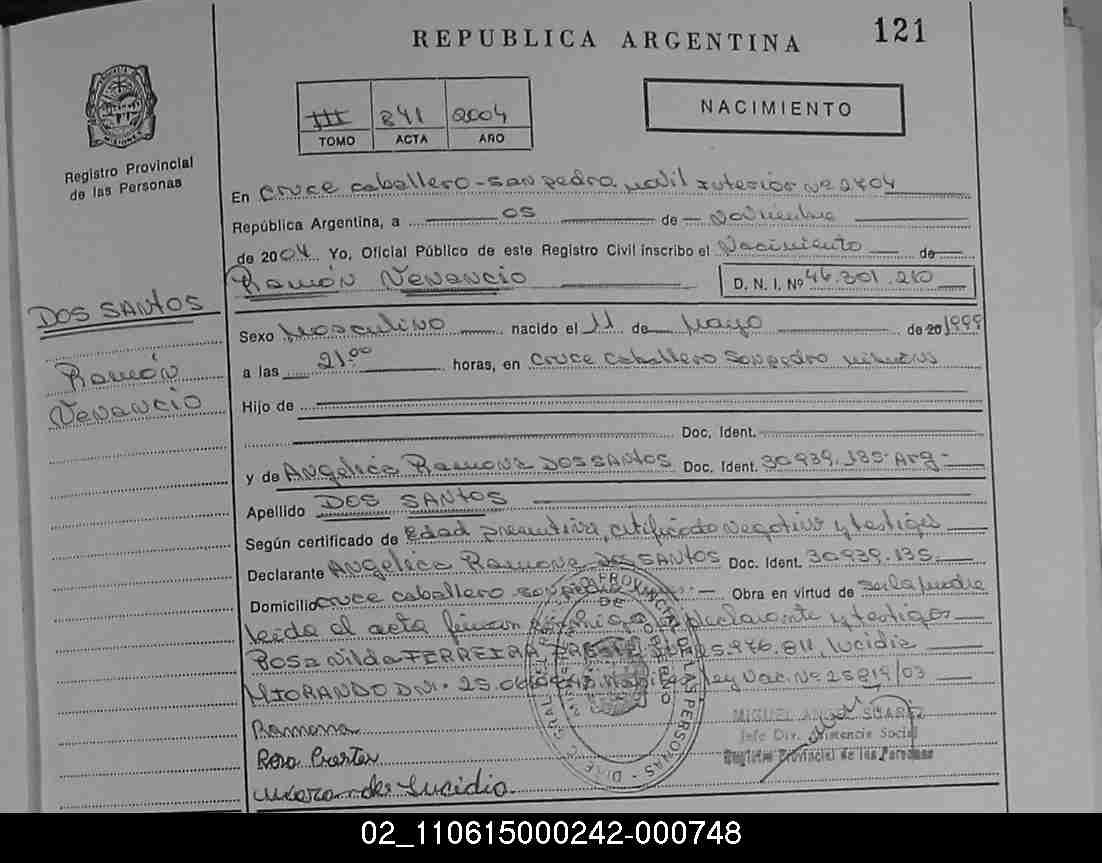 REPUBLICA ARGENTINA
121
III 241 2004
TOMO ACTA AÑO
NACIMIENTO
Registro Provincial
de las Personas
En Cruce caballero - San pedro Movil Interior Nº 2404
República Argentina, a 05 de Noviembre
de 2004 Yo, Oficial Público de este Registro Civil inscribo el Nacimiento de
Ramón Venancio
D. N. I. Nº 46.301.210
DOS SANTOS
Ramón
Venancio
Sexo Masculino nacido el 11 de Mayo de 20 1999
a las 21:00 horas, en Cruce Caballero San pedro Misiones
Hijo de
Doc. Ident.
y de Angelica Ramona DOS SANTOS Doc. Ident. 30.939.135. Arg-
Apellido DOS SANTOS
Según certificado de Edad presuntiva, certificado negativo y testigos
Declarante Angelica Ramona DOS SANTOS Doc. Ident. 30.939.135.
Domicilio cruce caballero san pedro Obra en virtud de ser la madre
leida el acta firman declarante y testigos
Rosa Nilda FERREIRA 976.811, Lucidia
MIORANDO DNI. 25. Ley Nac. Nº 25819/03
Ramona
MIGUEL ANGEL SUAREZ
Jefe Div. Asistencia Social
Registro Provincial de las Personas
Lucidia
02_110615000242-000748